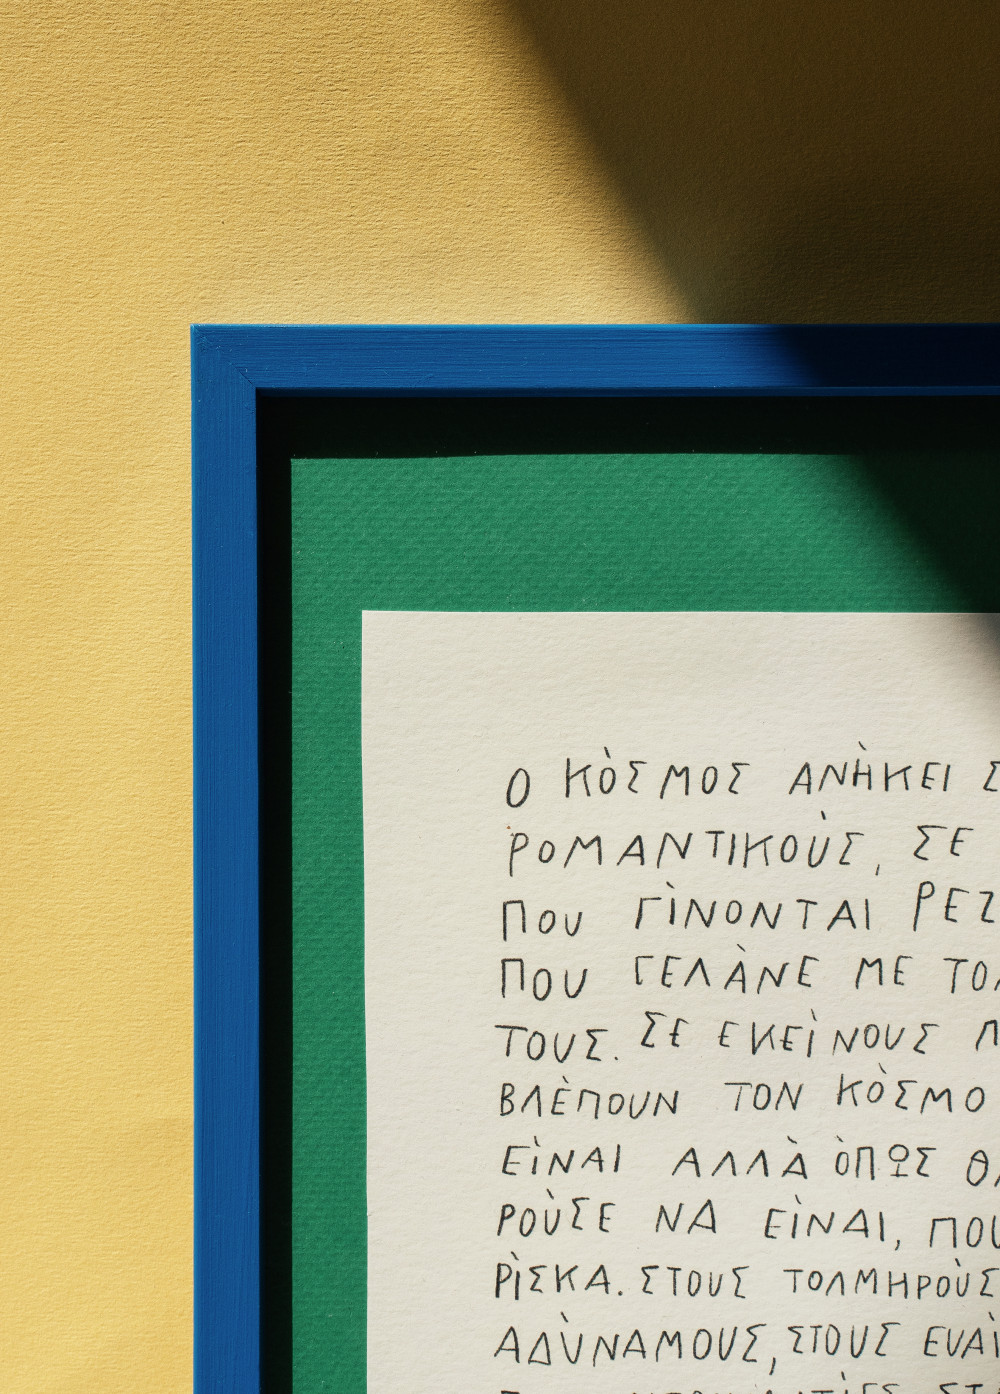 Ο ΚὸΣΜΟΣ ΑΝὴΚΕΙ
ΡΟΜΑΝΤΙΚΟὺΣ, ΣΕ
ΠΟΥ ΓὶΝΟΝΤΑΙ
ΠΟΥ ΓΕΛὰΝΕ ΜΕ
ΤΟΥΣ. ΣΕ ΕΚΕὶΝΟΥΣ
ΒΛὲΠΟΥΝ ΤΟΝ ΚὸΣΜΟ
ΕὶΝΑΙ ΑΛΛὰ ὸΠΩΣ
ΡΟὺΣΕ ΝΑ ΕὶΝΑΙ, ΠΟΥ
ΡὶΣΚΑ. ΣΤΟΥΣ ΤΟΛΜΗΡΟὺΣ
ΑΔὺΝΑΜΟΥΣ, ΣΤΟΥΣ